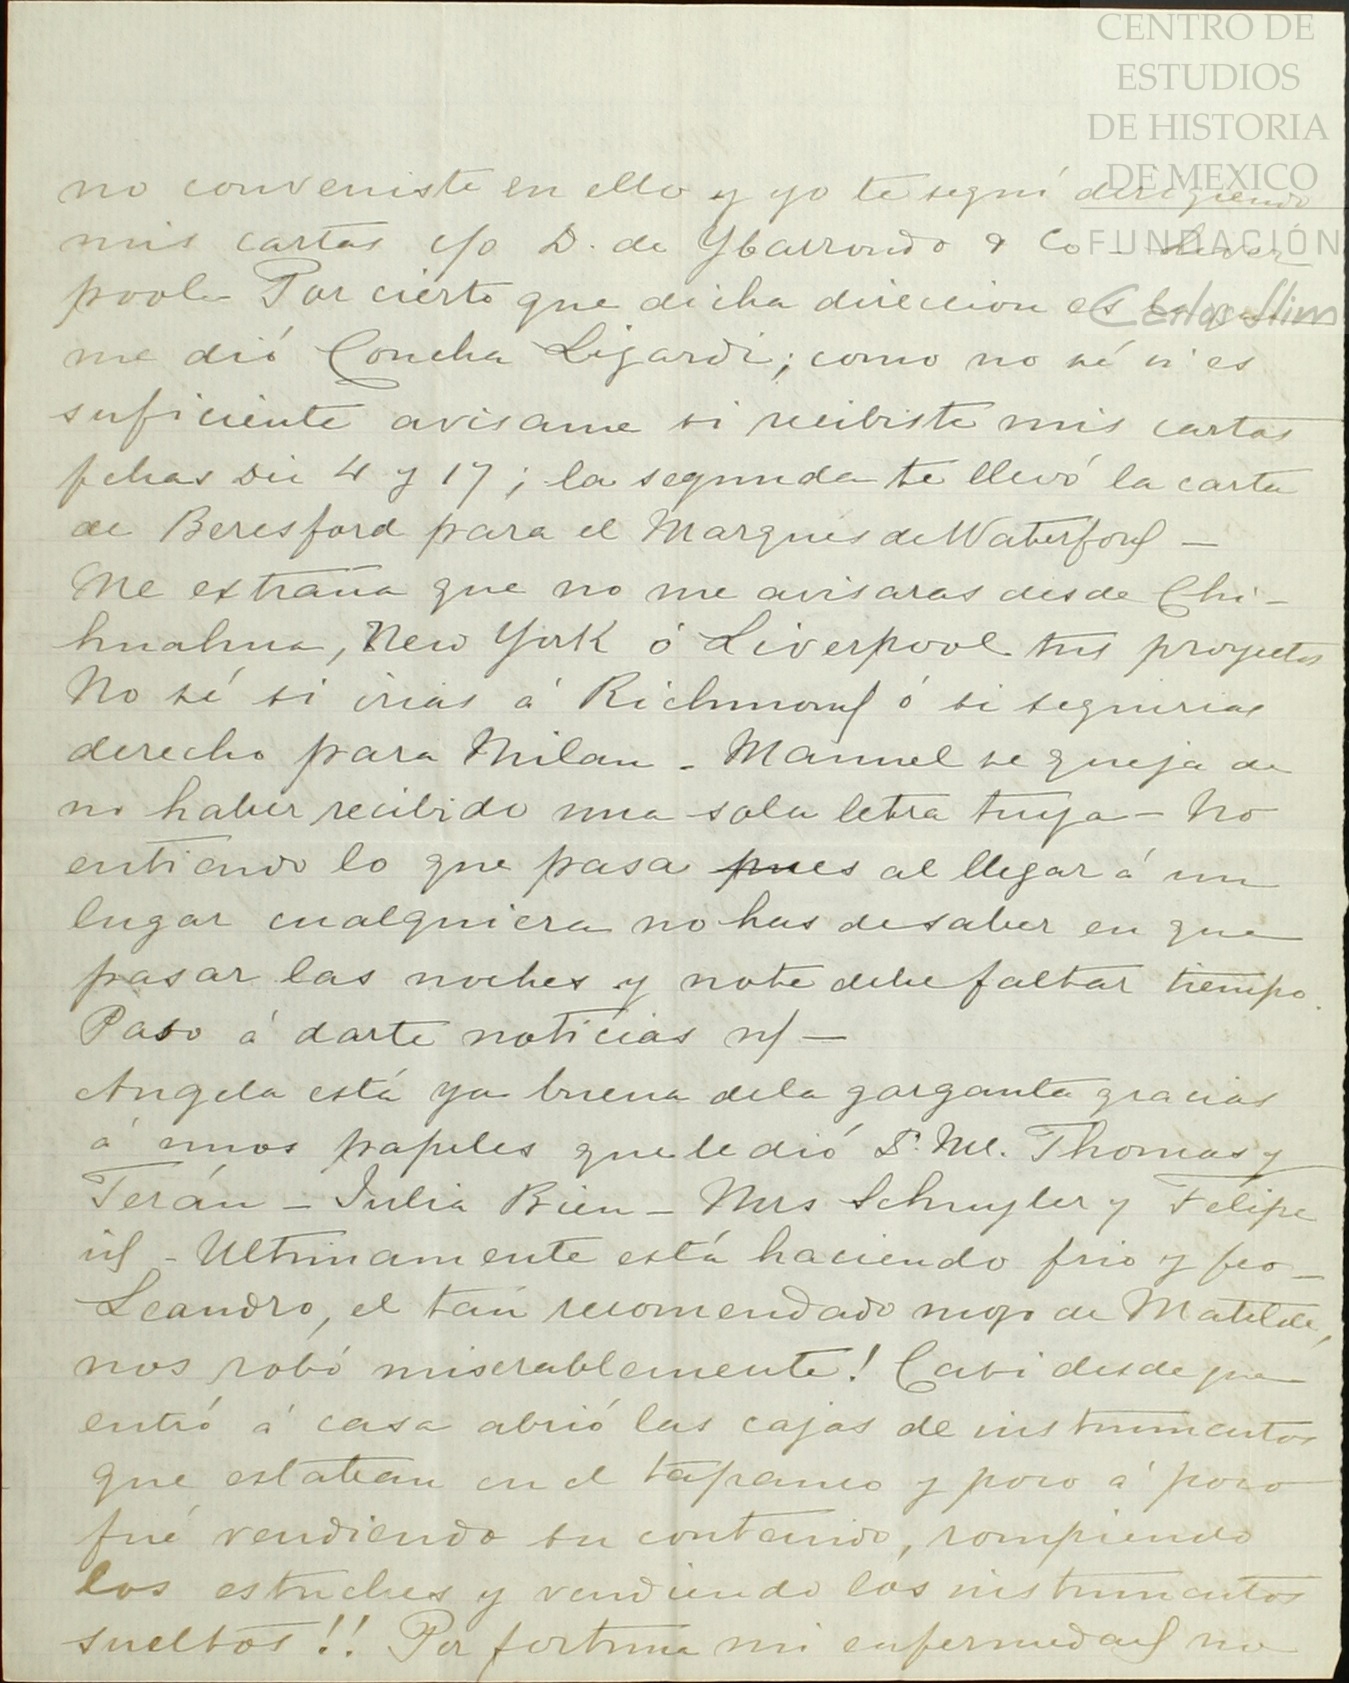 CENTRO DE
ESTUDIOS
DE HISTORIA
DE MEXICO
FUNDACIÓN
Carlos Slim
no conveniste en ello y yo te seguí dirigiendo
mis cartas c/o D. de Ybarrondo & Co - Liver
pool - Por cierto que dicha direccion es la que
me dió Concha Ligardi; como no sé si es
suficiente avisame si recibiste mis cartas
fchas Dic 4 y 17; la segunda te llevó la carta
de Beresford para el Marques de Waterford —
Me extraña que no me avisaras desde Chi-
huahua, New York ó Liverpool tus proyectos
No sé si irias á Richmond ó si seguirias
derecho para Milan - Manuel se queja de
no haber recibido una sola letra tuya - No
entiendo lo que pasa pues al llegar á un
lugar cualquiera no has de saber en que
pasar las noches y no te debe faltar tiempo.
Paso á darte noticias —
Angela está ya buena de la garganta gracias
á unos papeles que le dió Thomas y
Terán - Julia Bien - Mrs Schuyler y Felipe
id - Ultimamente está haciendo frio y feo -
Leandro, el tan recomendado mozo de Matilde,
nos robó miserablemente! Casi desde que
entró á casa abrió las cajas de instrumentos
que estaban en el tapanco y poco á poco
fué vendiendo su contenido, rompiendo
los estuches y vendiendo los instrumentos
sueltos!! Por fortuna mi enfermedad no